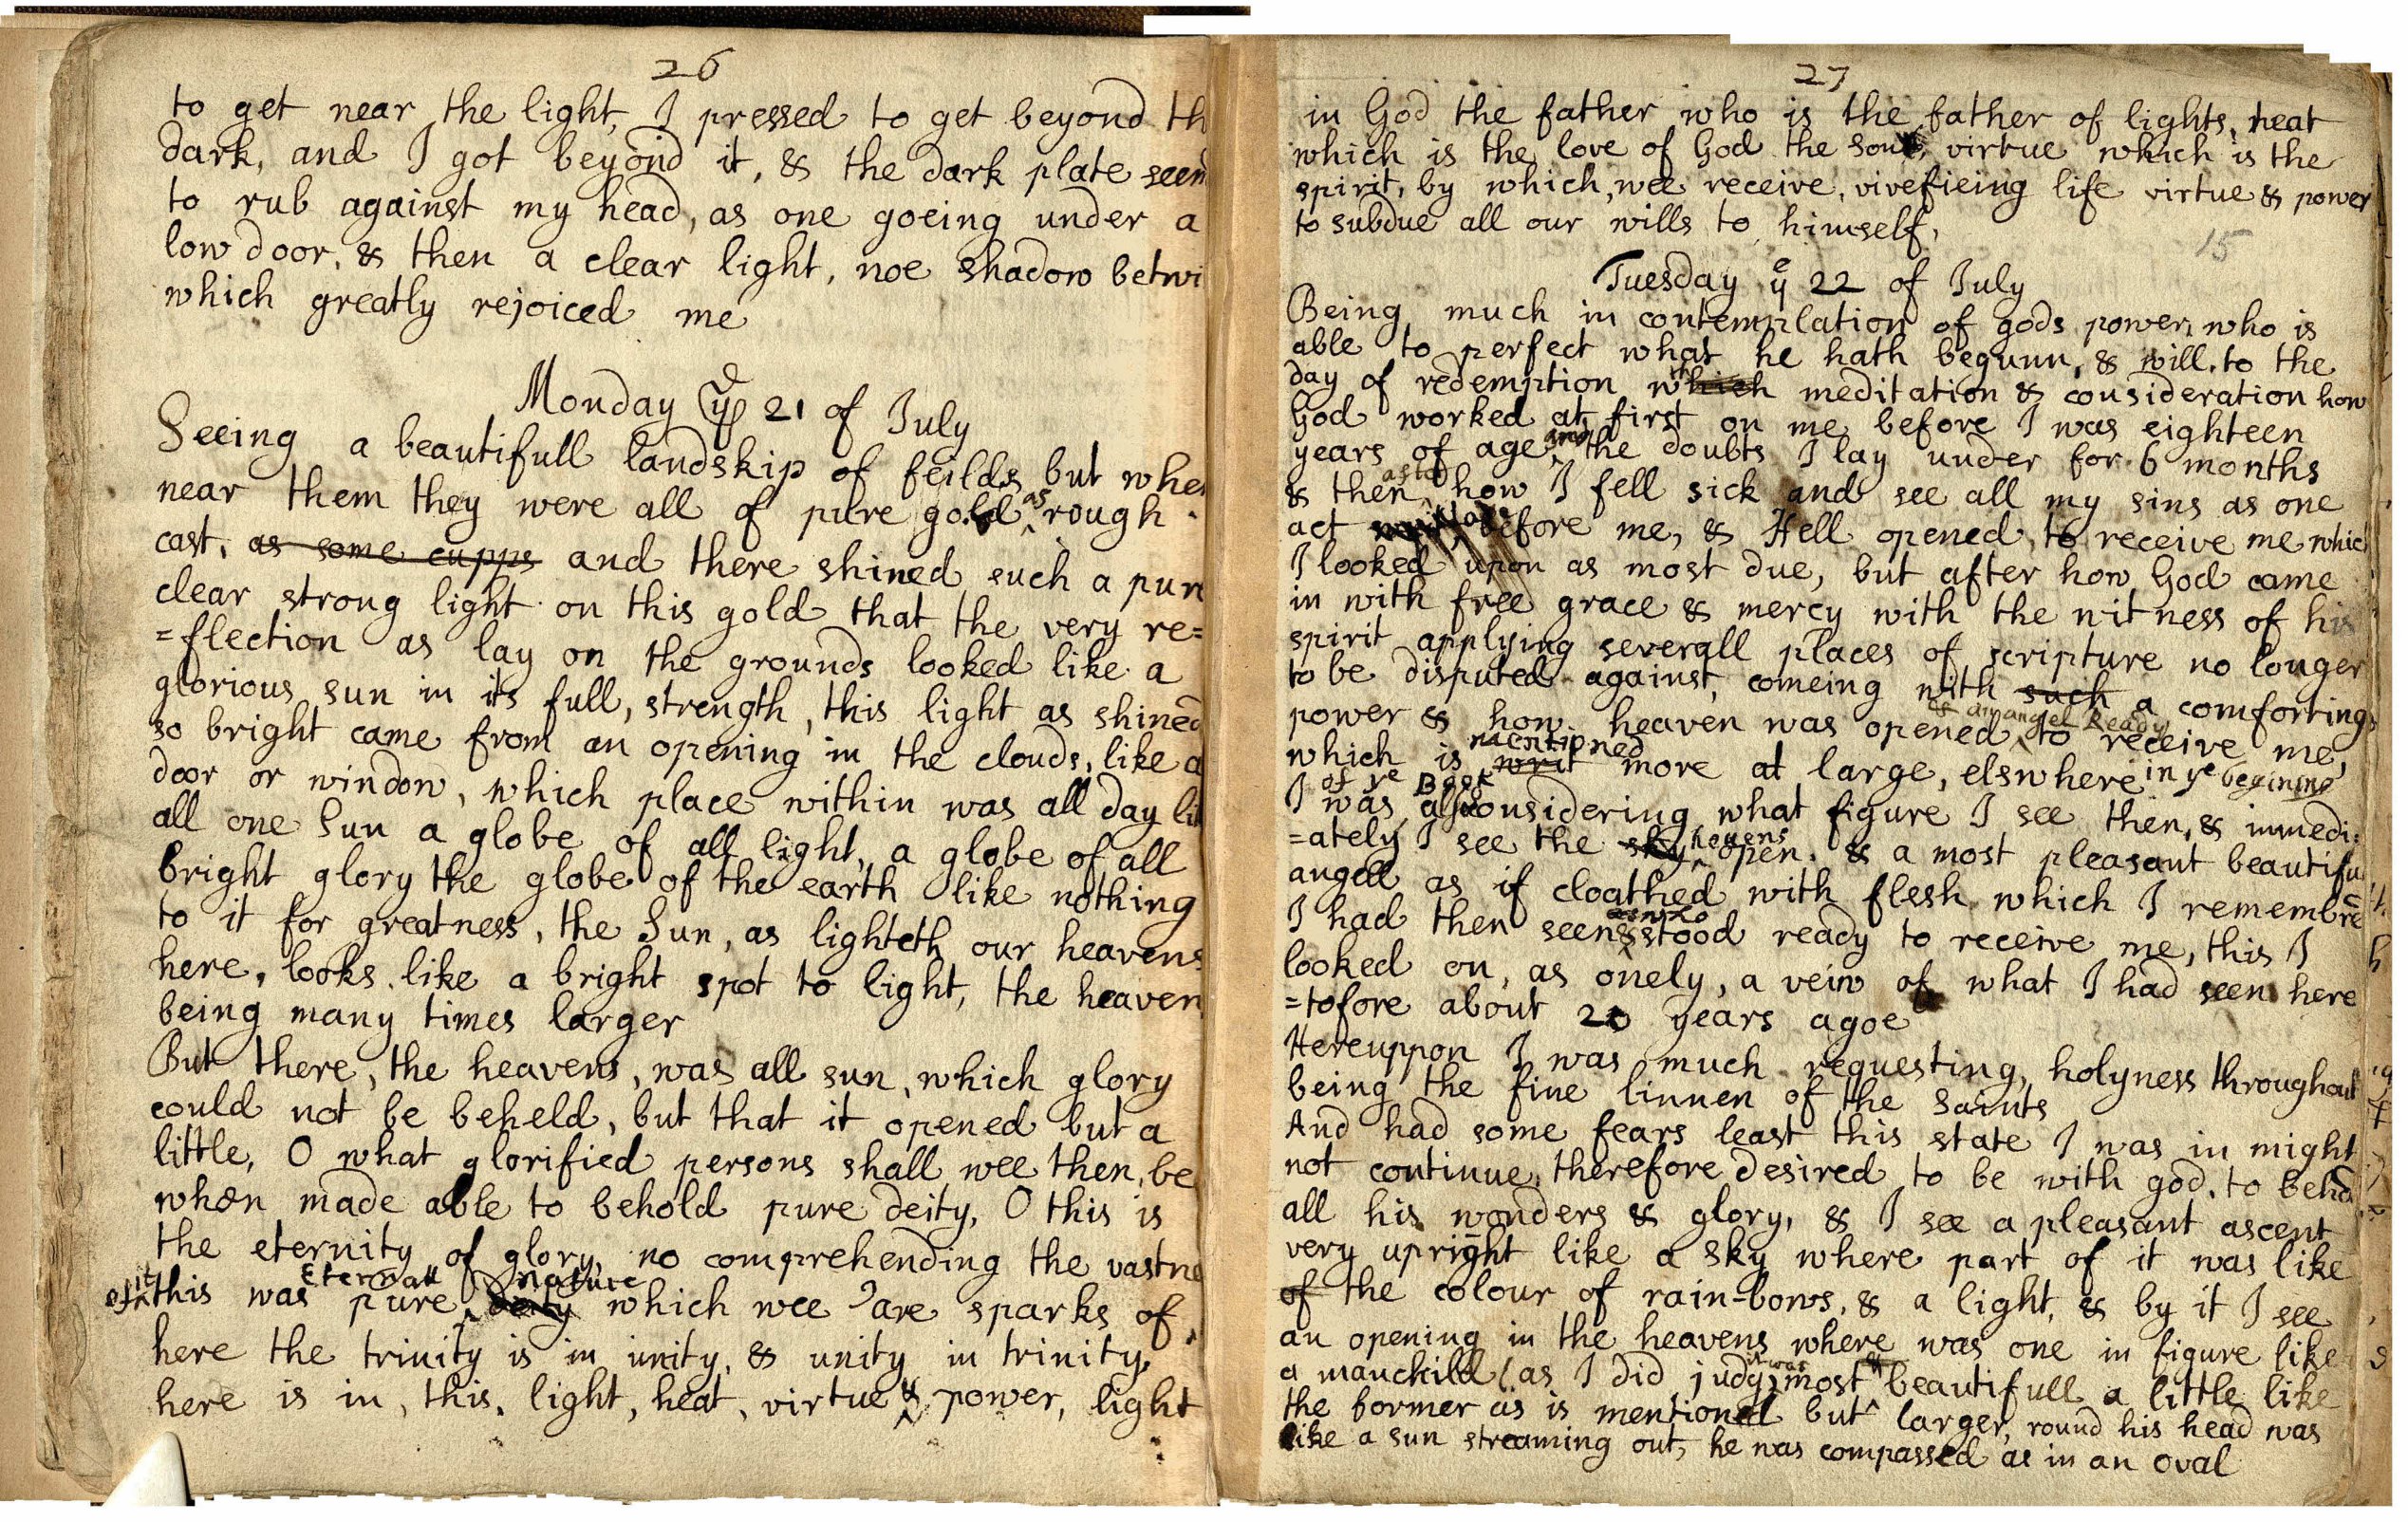 26
to get near the light, I pressed to get beyond th
dark, and I got beyond it, & the dark plate seem
to rub against my head, as one goeing under a
low door, & then a clear light, noe shadow betwi
which greatly rejoiced me
Monday ye 21 of July
Seeing a beautifull landskip of feilds but when
near them they were all of pure gold as rough
cast, as some cupps and there shined such a pure
clear strong light on this gold that the very re=
=flection as lay on the grounds looked like a
glorious sun in its full, strength, this light as shined
so bright came from an opening in the clouds, like a
door or window, which place within was all day li
all one Sun a globe of all light, a globe of all
bright glory the globe of the earth like nothing
to it for greatness, the Sun, as lighteth our heavens
here, looks like a bright spot to light, the heaven
being many times larger
But there, the heavens, was all sun, which glory
could not be beheld, but that it opened but a
little, O what glorified persons shall wee then, be
when made able to behold pure deity, O this is
the eternity of glory, no comprehending the vastne
of it this was pure Eternall deity nature which wee are sparks of
here the trinity is in unity, & unity in trinity,
here is in, this, light, heat, virtue & power, light
27
in God the father who is the father of lights, heat
which is the love of God the son, virtue which is the
spirit, by which, wee receive, vivefieing life virtue & power
to subdue all our wills to himself,
15
Tuesday ye 22 of July
Being much in contemplation of gods power, who is
able to perfect what he hath begunn, & will, to the
day of redemption which meditation & consideration how
God worked at first on me before I was eighteen
years of age and the doubts I lay under for 6 months
& then as to how I fell sick and see all my sins as one
act before me, & Hell opened, to receive me whic
I looked upon as most due, but after how God came
in with free grace & mercy with the witness of his
spirit applying severall places of scripture no longer
to be disputed against, comeing with such a comforting
power & how heaven was opened & an angel Ready to receive me,
which is writ mentioned more at large, elswhere in ye begining
of ye Book
I was also considering what figure I see then, & immedi=
=ately I see the sky hevens open, & a most pleasant beautifu
angell as if cloathed with flesh which I remembre
I had then seen & stood ready to receive me, this I
looked on, as onely, a vein of what I had seen here
=tofore about 20 years agoe
Hereuppon I was much requesting, holyness throughout
being the fine linnen of the Saints
And had some fears least this state I was in might
not continue, therefore desired to be with god, to beho
all his wonders & glory, & I see a pleasant ascent
very upright like a sky where part of it was like
of the colour of rain-bows, & a light, & by it I see
an opening in the heavens where was one in figure like
a manchild (as I did judg) it was most beautifull a little like
the former as is mentioned but larger, round his head was
like a sun streaming out, he was compassed as in an oval